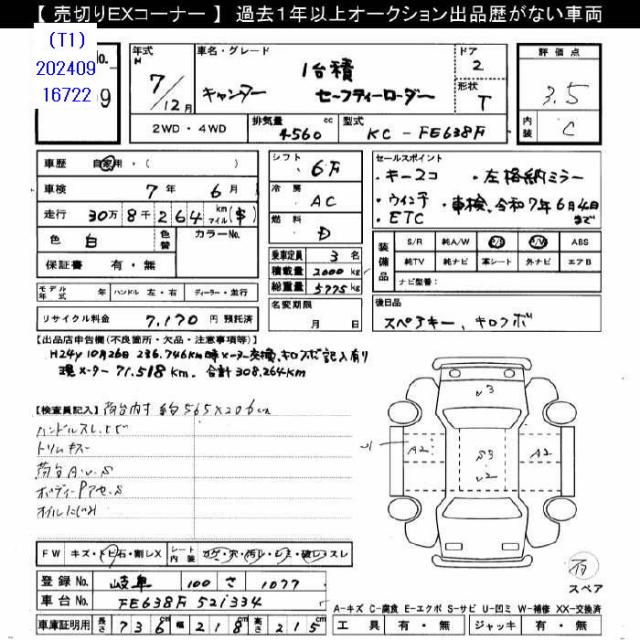 【 売切りEXコーナー 】 過去1年以上オークション出品歴がない車両
(T1)
202409
16722
No.
9
年式 H 7/12月
車名・グレード
1台積
キャンター セーフティーローダー
ドア 2
形状 T
評価点 3.5
内装 C
2WD・4WD
排気量 4560 cc
型式 KC-FE638F
車歴 自家用・( )
車検 7年 6月
走行 30万8千264 km マイル ($)
色 白
色替
カラーNo.
保証書 有・無
シフト 6F
冷房 AC
燃料 D
乗車定員 3名
積載量 2000 kg
総重量 5775 kg
セールスポイント
・キーフコ ・左格納ミラー
・ウインチ ・車検、令和7年6月4日まで
・ETC
装備品
S/R 純A/W P/S P/W ABS
純TV 純ナビ 革シート 外ナビ エアB
ナビ型番:
モデル年式 年 ハンドル 左・右 ディーラー・並行
名変期限 月 日
後日品
スペアキー、キロフボ
リサイクル料金 7,170 円 預託済
【出品店申告欄(不良箇所・欠品・注意事項等)】
H24y 10月26日 236.746km時メーター交換、キロフボ記入有り
現メーター 71.518km. 合計308.264km
【検査員記入】 荷台内寸 約565×206cm
ハンドルスレ、ヒビ
トリムキズ
荷台A.U.S
ボディーPアセ.S
オイルにじみ
3
A2
S3
2
A2
FW キズ・トビ石・割レX
シート内装 コゲ・穴・汚レ・シミ・破レ・スレ
登録No. 岐阜 100 さ 1077
車台No. FE638F 521334
車庫証明用 長さ 736 幅 218 高さ 215
有
スペア
A-キズ C-腐食 E-エクボ S-サビ U-凹ミ W-補修 XX-交換済
工具 有・無 ジャッキ 有・無